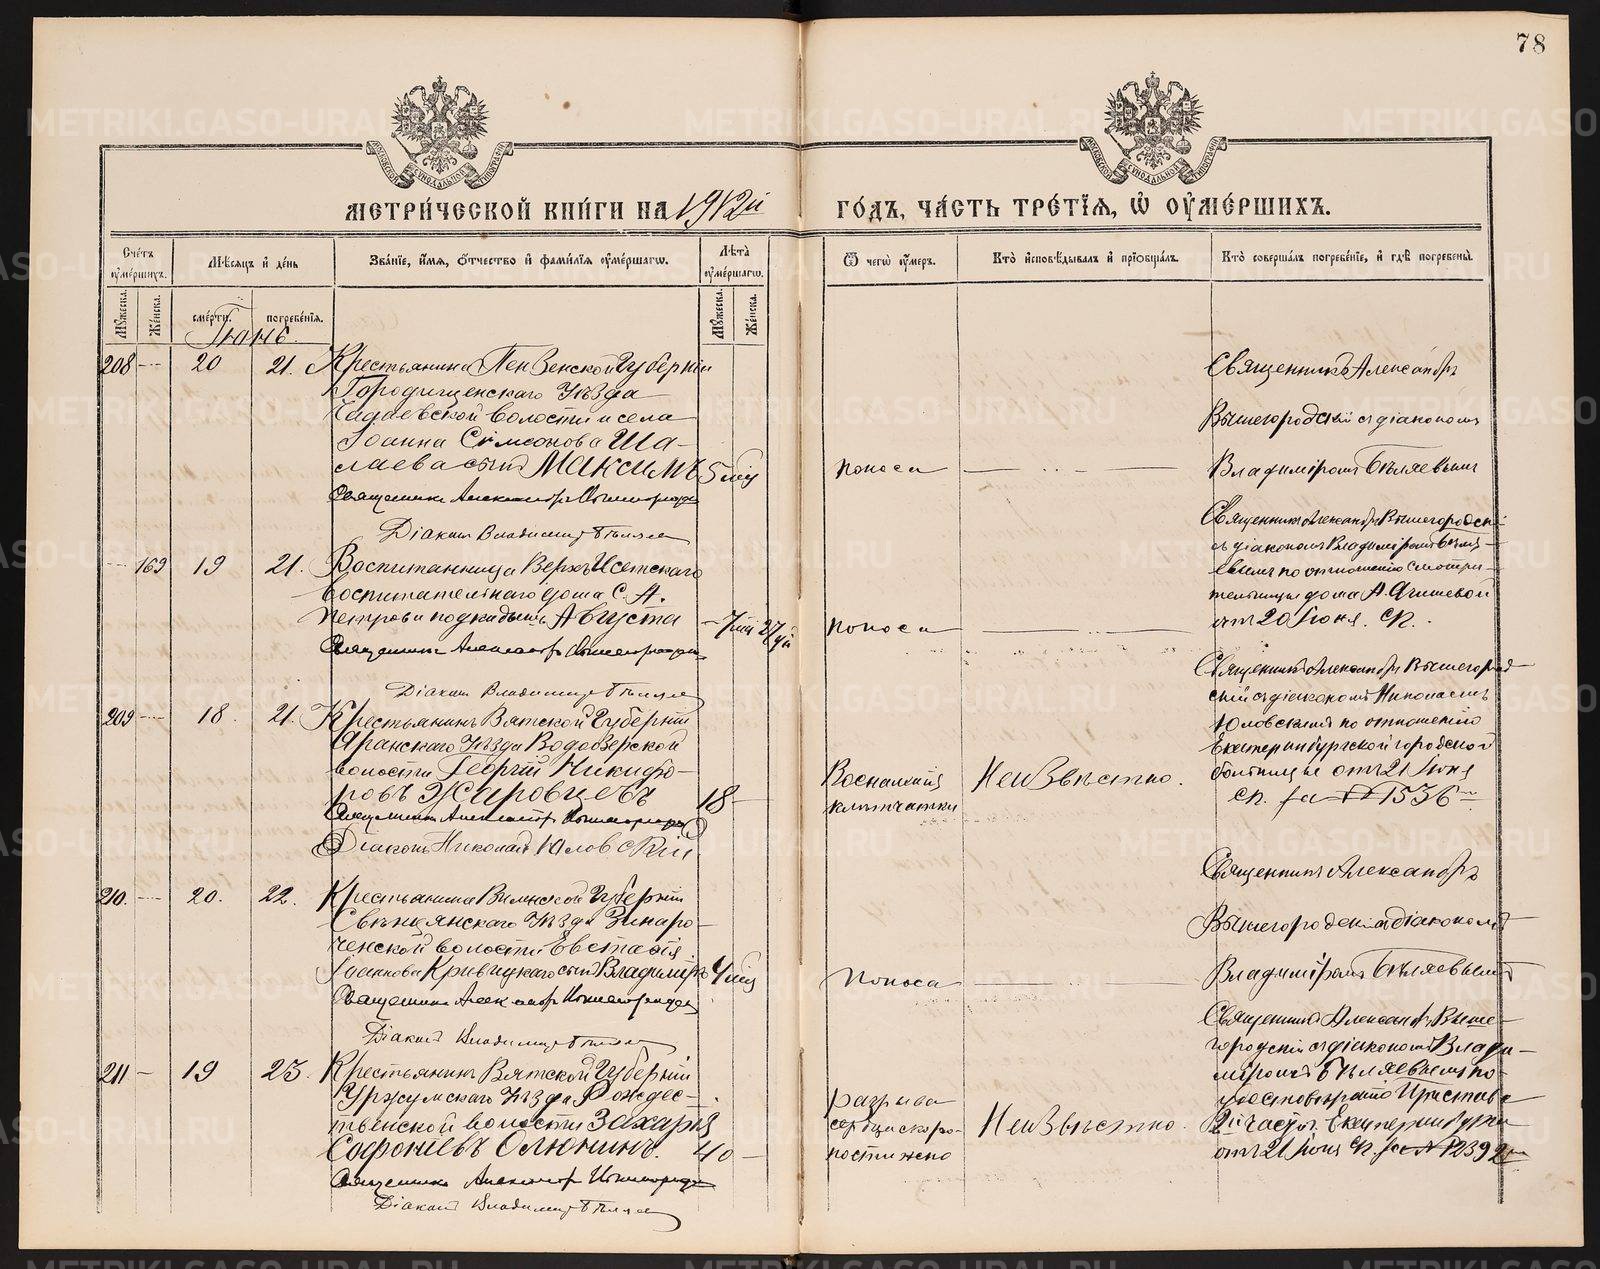 78
МЕТРИ́ЧЕСКОЙ КНИ́ГИ НА 1912й
ГО́ДЪ, ЧА́СТЬ ТРЕ́ТІѦ, Ѡ ОУ҆МЕ́РШИХЪ.
Сче́тъ оу҆ме́ршихъ.
Мѣ́сѧцъ и҆ де́нь
Зва́ніе, и҆́мѧ, ѻ҆́тчество и҆ фами́лїѧ оу҆ме́ршагѡ.
Лѣ́та оу҆ме́ршагѡ.
Ѿ чегѡ̀ оу҆́меръ.
Кто̀ и҆сповѣ́дывалъ и҆ прїѡбща́лъ.
Кто̀ соверша́лъ погребе́нїе, и҆ гдѣ̀ погребены̀.
Му́жеска.
Же́нска.
сме́рти.
погребе́нїѧ.
Му́жеска.
Же́нска.
Іюнь.
208 20 21. Крестьянина Пензенской Губерніи
Городищенскаго Уѣзда
Чадаевской волости и села
Іоанна Симеонова Ша-
лаева сынъ Максимъ 5 мѣс
Священникъ Александръ Вышегородскій
Діаконъ Владиміръ Бѣляевъ
Поноса
Священникъ Александръ
Вышегородскій съ діакономъ
Владиміромъ Бѣляевымъ
169 19 21. Воспитанница Верхъ Исетскаго
воспитательнаго дома С. А.
Петрова подкидышъ Августа 7 мѣс 27 дн
Священникъ Александръ Вышегородскій
Діаконъ Владиміръ Бѣляевъ
Поноса
Священникъ Александръ Вышегородскій
съ діакономъ Владиміромъ Бѣля-
евымъ по отношенію смотри-
тельницы дома А. Ягишевой
отъ 20 Іюня с. г.
209 18. 21. Крестьянинъ Вятской Губерніи
Яранскаго Уѣзда Водозерской
волости Георгій Никифо-
ровъ Жаровцевъ 18
Священникъ Александръ Вышегородскій
Діаконъ Николай Юловскій
Воспаленія
клѣтчатки
Неизвѣстно.
Священникъ Александръ Вышегород-
скій съ діакономъ Николаемъ
Юловскимъ по отношенію
Екатеринбургской городской
больницы отъ 21 Іюня
с. г. за № 1536
210. 20. 22. Крестьянина Виленской Губерніи
Свѣнцянскаго Уѣзда Занаро-
ченской волости Евстафія
Іоаннова Кривицкаго сынъ Владиміръ 4 мѣс
Священникъ Александръ Вышегородскій
Діаконъ Владиміръ Бѣляевъ
Поноса
Священникъ Александръ
Вышегородскій съ діакономъ
Владиміромъ Бѣляевымъ
211 19 23. Крестьянинъ Вятской Губерніи
Уржумскаго Уѣзда Рождес-
твенской волости Захарія
Софоніевъ Олюнинъ. 40
Священникъ Александръ Вышегородскій
Діаконъ Владиміръ Бѣляевъ
разрыва
сердца скоро-
постижно
Неизвѣстно.
Священникъ Александръ Выше-
городскій съ діакономъ Влади-
міромъ Бѣляевымъ по
удостовѣренію Пристава
2й части г. Екатеринбурга
отъ 21 Іюня с. г. за № 12392
METRIKI.GASO-URAL.RU